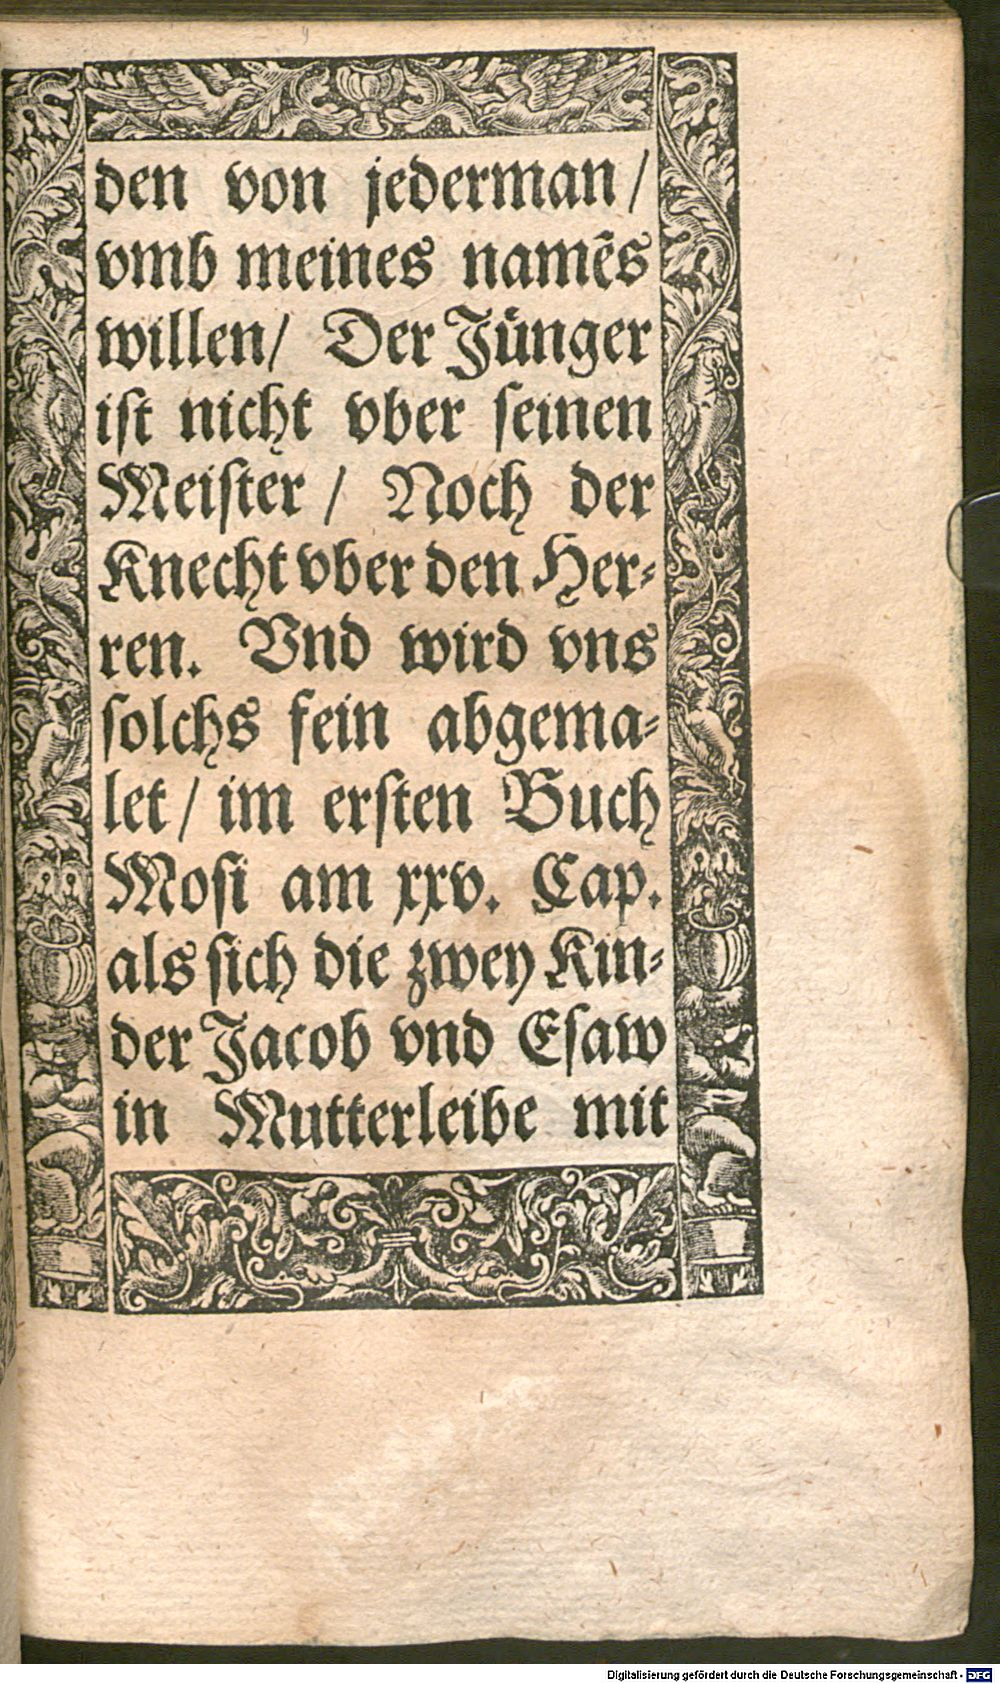 den von jederman /
vmb meines namẽs
willen / Der Jünger
ist nicht vber seinen
Meister / Noch der
Knecht vber den Her⸗
ren. Vnd wird vns
solchs fein abgema⸗
let / im ersten Buch
Mosi am xxv. Cap.
als sich die zwey Kin⸗
der Jacob vnd Esaw
in Mutterleibe mit
Digitalisierung gefördert durch die Deutsche Forschungsgemeinschaft - DFG